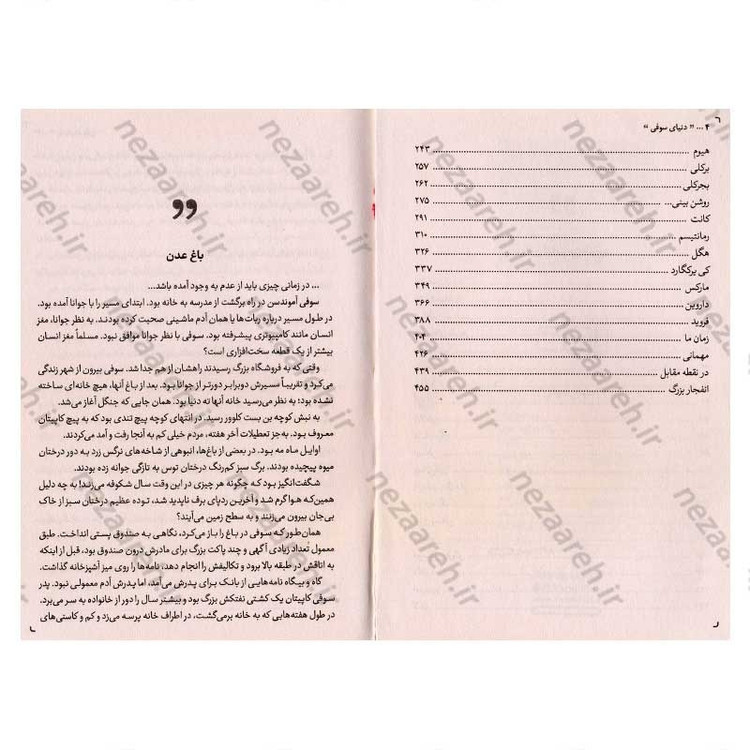 ۴ ... " دنیای سوفی "
هیوم ........ ۲۴۳
برکلی ........ ۲۵۷
بجرکلی ........ ۲۶۲
روشن بینی... ........ ۲۷۵
کانت ........ ۲۹۱
رمانتیسم ........ ۳۱۰
هگل ........ ۳۲۶
کی یرکگارد ........ ۳۳۷
مارکس ........ ۳۴۹
داروین ........ ۳۶۶
فروید ........ ۳۸۸
زمان ما ........ ۴۰۴
مهمانی ........ ۴۲۶
در نقطه مقابل ........ ۴۳۹
انفجار بزرگ ........ ۴۵۵
باغ عدن
... در زمانی چیزی باید از عدم به وجود آمده باشد...
سوفی آموندسن در راه برگشت از مدرسه به خانه بود. ابتدای مسیر را با جوانا آمده بود.
در طول مسیر درباره ربات‌ها یا همان آدم ماشینی صحبت کرده بودند. به نظر جوانا، مغز
انسان مانند کامپیوتری پیشرفته بود. سوفی با نظر جوانا موافق نبود. مسلماً مغز انسان
بیشتر از یک قطعه سخت‌افزاری است؟
وقتی که به فروشگاه بزرگ رسیدند راهشان از هم جدا شد. سوفی بیرون از شهر زندگی
می‌کرد و تقریباً مسیرش دوبرابر دورتر از جوانا بود. بعد از باغ آنها، هیچ خانه‌ای ساخته
نشده بود؛ به نظر می‌رسید خانه آنها ته دنیا بود. همان جایی که جنگل آغاز می‌شد.
به نبش کوچه بن بست کلوور رسید. در انتهای کوچه پیچ تندی بود که به پیچ کاپیتان
معروف بود. به‌جز تعطیلات آخر هفته، مردم خیلی کم به آنجا رفت و آمد می‌کردند.
اوایل ماه مه بود. در بعضی از باغ‌ها، انبوهی از شاخه‌های نرگس زرد به دور درختان
میوه پیچیده بودند. برگ سبز کم‌رنگ درختان توس به تازگی جوانه زده بودند.
شگفت‌انگیز بود که چگونه هر چیزی در این وقت سال شکوفه می‌زند! به چه دلیل
همین‌که هوا گرم شد و آخرین ردپای برف ناپدید شد، توده عظیم درختان سبز از خاک
بی‌جان بیرون می‌زنند و به سطح زمین می‌آیند؟
همان‌طور که سوفی در باغ را باز می‌کرد، نگاهی به صندوق پستی انداخت. طبق
معمول تعداد زیادی آگهی و چند پاکت بزرگ برای مادرش درون صندوق بود، قبل از اینکه
به اتاقش در طبقه بالا برود و تکالیفش را انجام دهد، نامه‌ها را روی میز آشپزخانه گذاشت.
گاه و بیگاه نامه‌هایی از بانک برای پدرش می‌آمد، اما پدرش آدم معمولی نبود. پدر
سوفی کاپیتان یک کشتی نفتکش بزرگ بود و بیشتر سال را دور از خانواده به سر می‌برد.
در طول هفته‌هایی که به خانه برمی‌گشت، در اطراف خانه پرسه می‌زد و کم و کاستی‌های
nezaareh.ir
nezaareh.ir
nezaareh.ir
nezaareh.ir
nezaareh.ir
nezaareh.ir
nezaareh.ir
nezaareh.ir